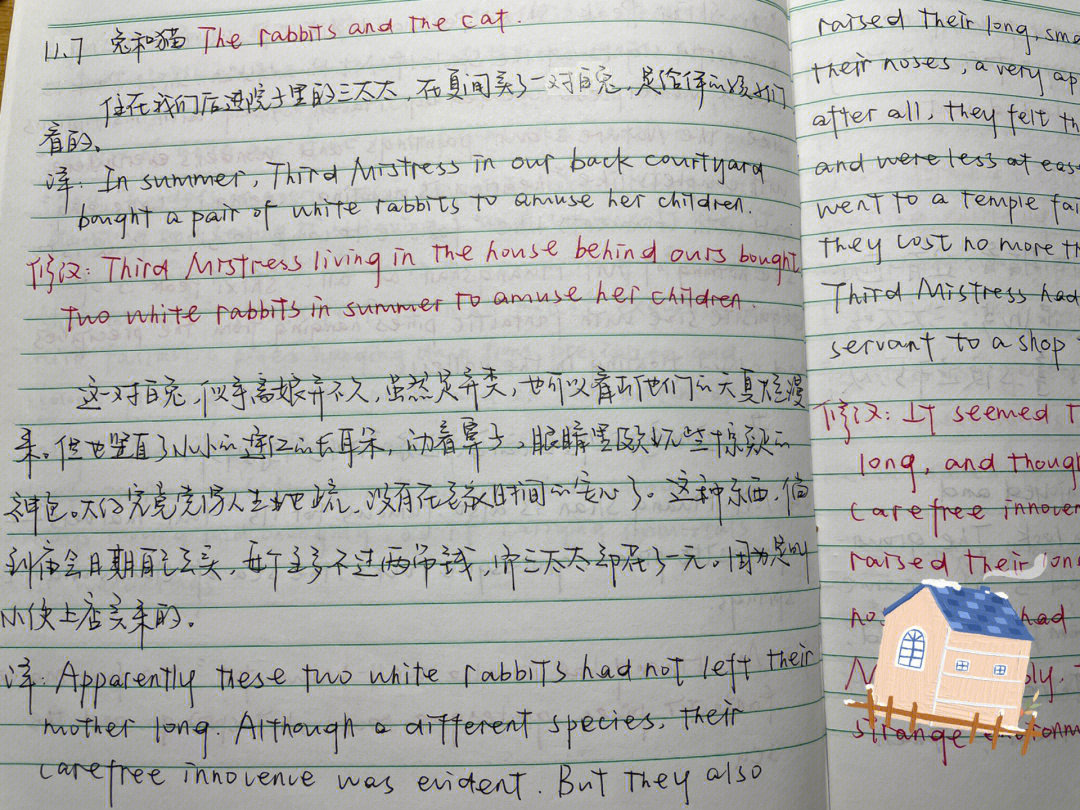 11.7 兔和猫 The rabbits and the cat.
住在我们后进院子里的三太太，在夏间买了一对白兔，是给伊的孩子们
看的。
译: In summer, Third Mistress in our back courtyard
bought a pair of white rabbits to amuse her children.
修改: Third Mistress living in the house behind ours bought
two white rabbits in summer to amuse her children.
这一对白兔，似乎离娘并不久，虽然是异类，也可以看出他们的天真烂漫
来。但也竖直了小小的通红的长耳朵，动着鼻子，眼睛里颇现些惊疑的
神色。大约究竟觉得人生地疏，没有在老家时间的安心了。这种东西，倘
到庙会日期自己去买，每个至多不过两吊钱，而三太太却花了一元。因为是叫
小使上店买来的。
译: Apparently these two white rabbits had not left their
mother long. Although a different species, their
carefree innovence was evident. But they also
raised their long, sma
their noses, a very ap
after all, they felt th
and were less at ease
went to a temple fai
they cost no more th
Third Mistress had
servant to a shop
修改: It seemed t
long, and though
carefree innoven
raised their long
no had
M bly.
strange environm